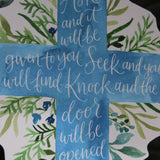 and it
will be
given to you Seek and you
will find Knock and the
door
will be
opened